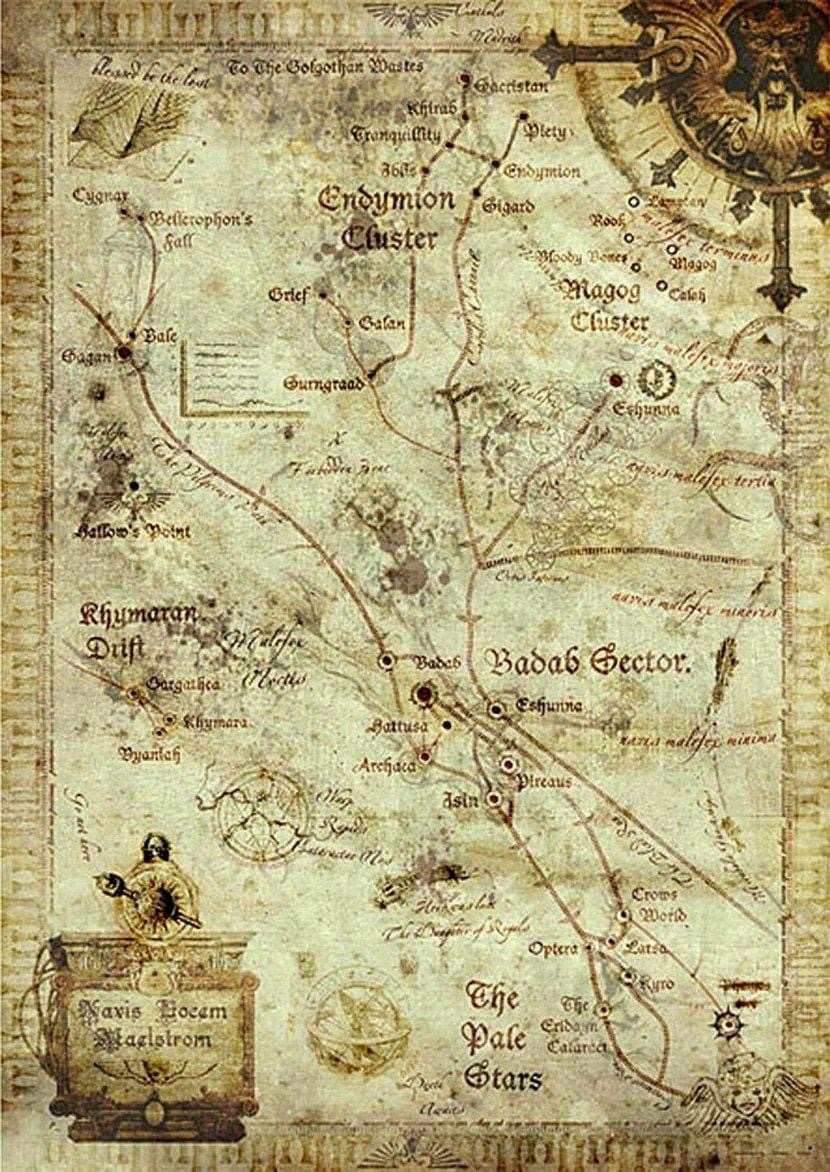 blessed be the lost
To The Golgothan Wastes
Sacristan
Khirab
Tranquillity
Piety
Iblis
Endymion
Sigard
Endymion
Cluster
Cygnax
Bellerophon's
Fall
Rook
Bloody Bones
Magog
Calah
malefex terminus
Magog
Cluster
Grief
Galan
Bale
Sagan
Gurngraad
navis malefex majoris
Eshunna
The Pilgrims Path
Forbidden Zone
navis malefex tertia
Hallow's Point
navis malefex minoris
Khymaran
Drift
Malefex
Mortis
Badab
Badab Sector.
Gargathea
Khymara
Vyaniah
Eshunna
Hattusa
navis malefex minima
Archaea
Pireaus
Isin
Go not here
Warp
Rapids
Crows
World
The Daughter of Regals
Optera
Latsa
Kyro
The
Pale
Stars
The
Eridayn
Cataract
Navis Locem
Maelstrom
Death
Awaits